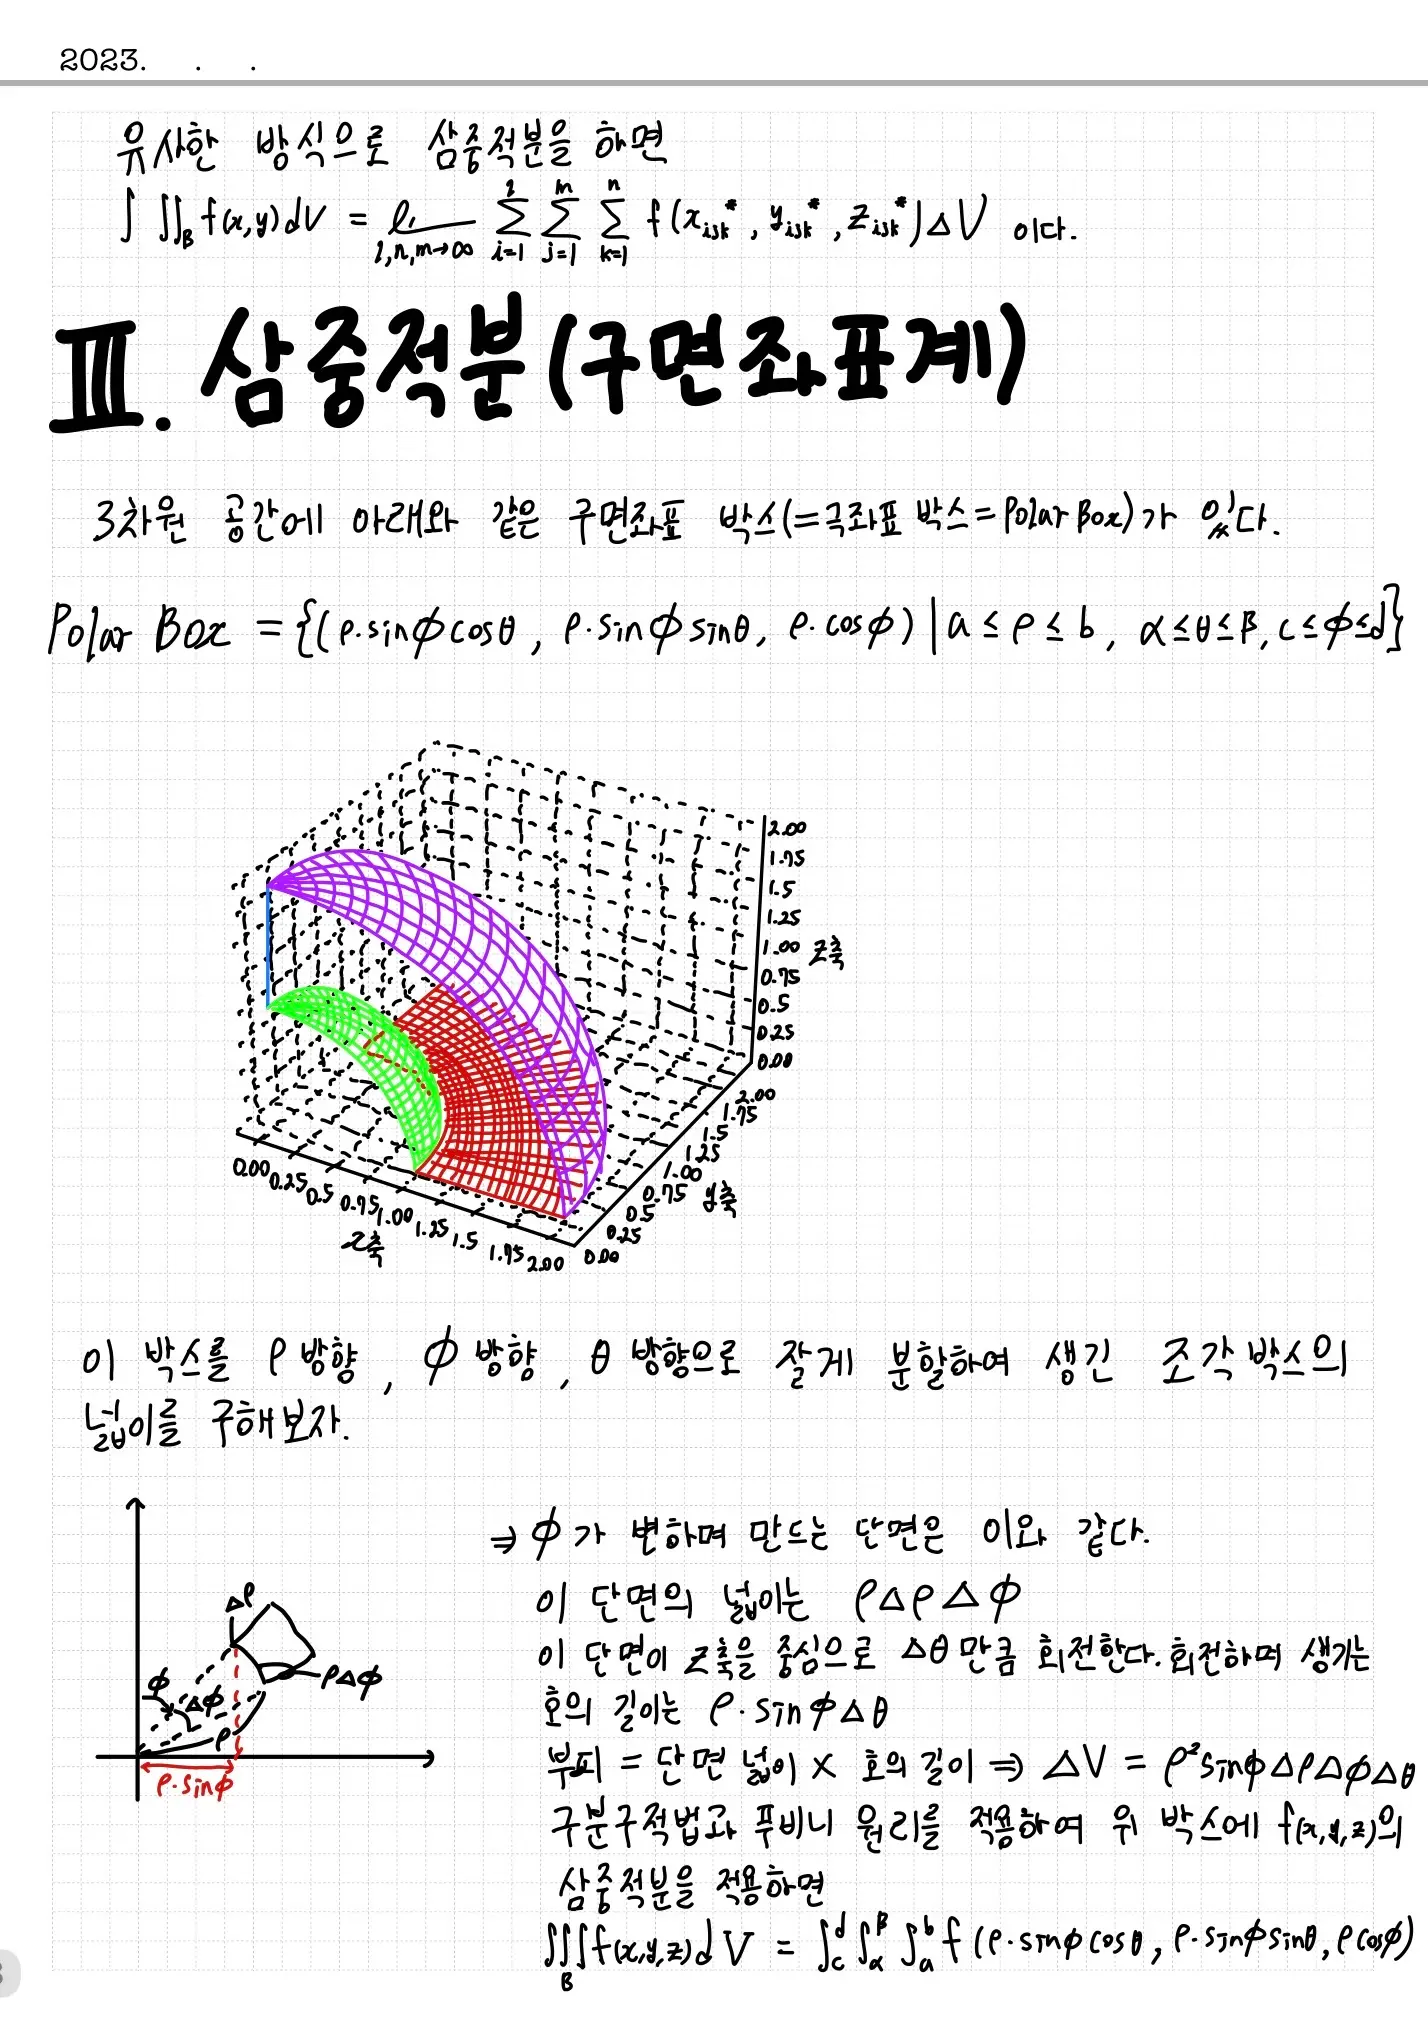 2023. . .
유사한 방식으로 삼중적분을 하면
∫∬_B f(x,y)dV = lim_{l,n,m→∞} Σ_{i=1}^{l} Σ_{j=1}^{m} Σ_{k=1}^{n} f(x_{ijk}*, y_{ijk}*, z_{ijk}*)ΔV 이다.
Ⅲ. 삼중적분(구면좌표계)
3차원 공간에 아래와 같은 구면좌표 박스(=극좌표 박스=Polar Box)가 있다.
Polar Box = {(ρ·sinφcosθ, ρ·sinφsinθ, ρ·cosφ) | a ≤ ρ ≤ b, α≤θ≤β, c≤φ≤d}
2.00
1.75
1.5
1.25
1.00 z축
0.75
0.5
0.25
0.00
2.00
1.75
1.5
1.25
1.00
0.75 y축
0.5
0.25
0.00
0.00 0.25 0.5 0.75 1.00 1.25 1.5 1.75 2.00
x축
이 박스를 ρ방향, φ방향, θ방향으로 잘게 분할하여 생긴 조각박스의
넓이를 구해보자.
Δρ
ρΔφ
φ
Δφ
ρ
ρ·sinφ
⇒ φ가 변하며 만드는 단면은 이와 같다.
이 단면의 넓이는 ρΔρΔφ
이 단면이 z축을 중심으로 Δθ만큼 회전한다. 회전하며 생기는
호의 길이는 ρ·sinφΔθ
부피 = 단면 넓이 × 호의 길이 ⇒ ΔV = ρ²sinφΔρΔφΔθ
구분구적법과 푸비니 원리를 적용하여 위 박스에 f(x,y,z)의
삼중적분을 적용하면
∭_B f(x,y,z)dV = ∫_c^d ∫_α^β ∫_a^b f(ρ·sinφcosθ, ρ·sinφsinθ, ρcosφ)